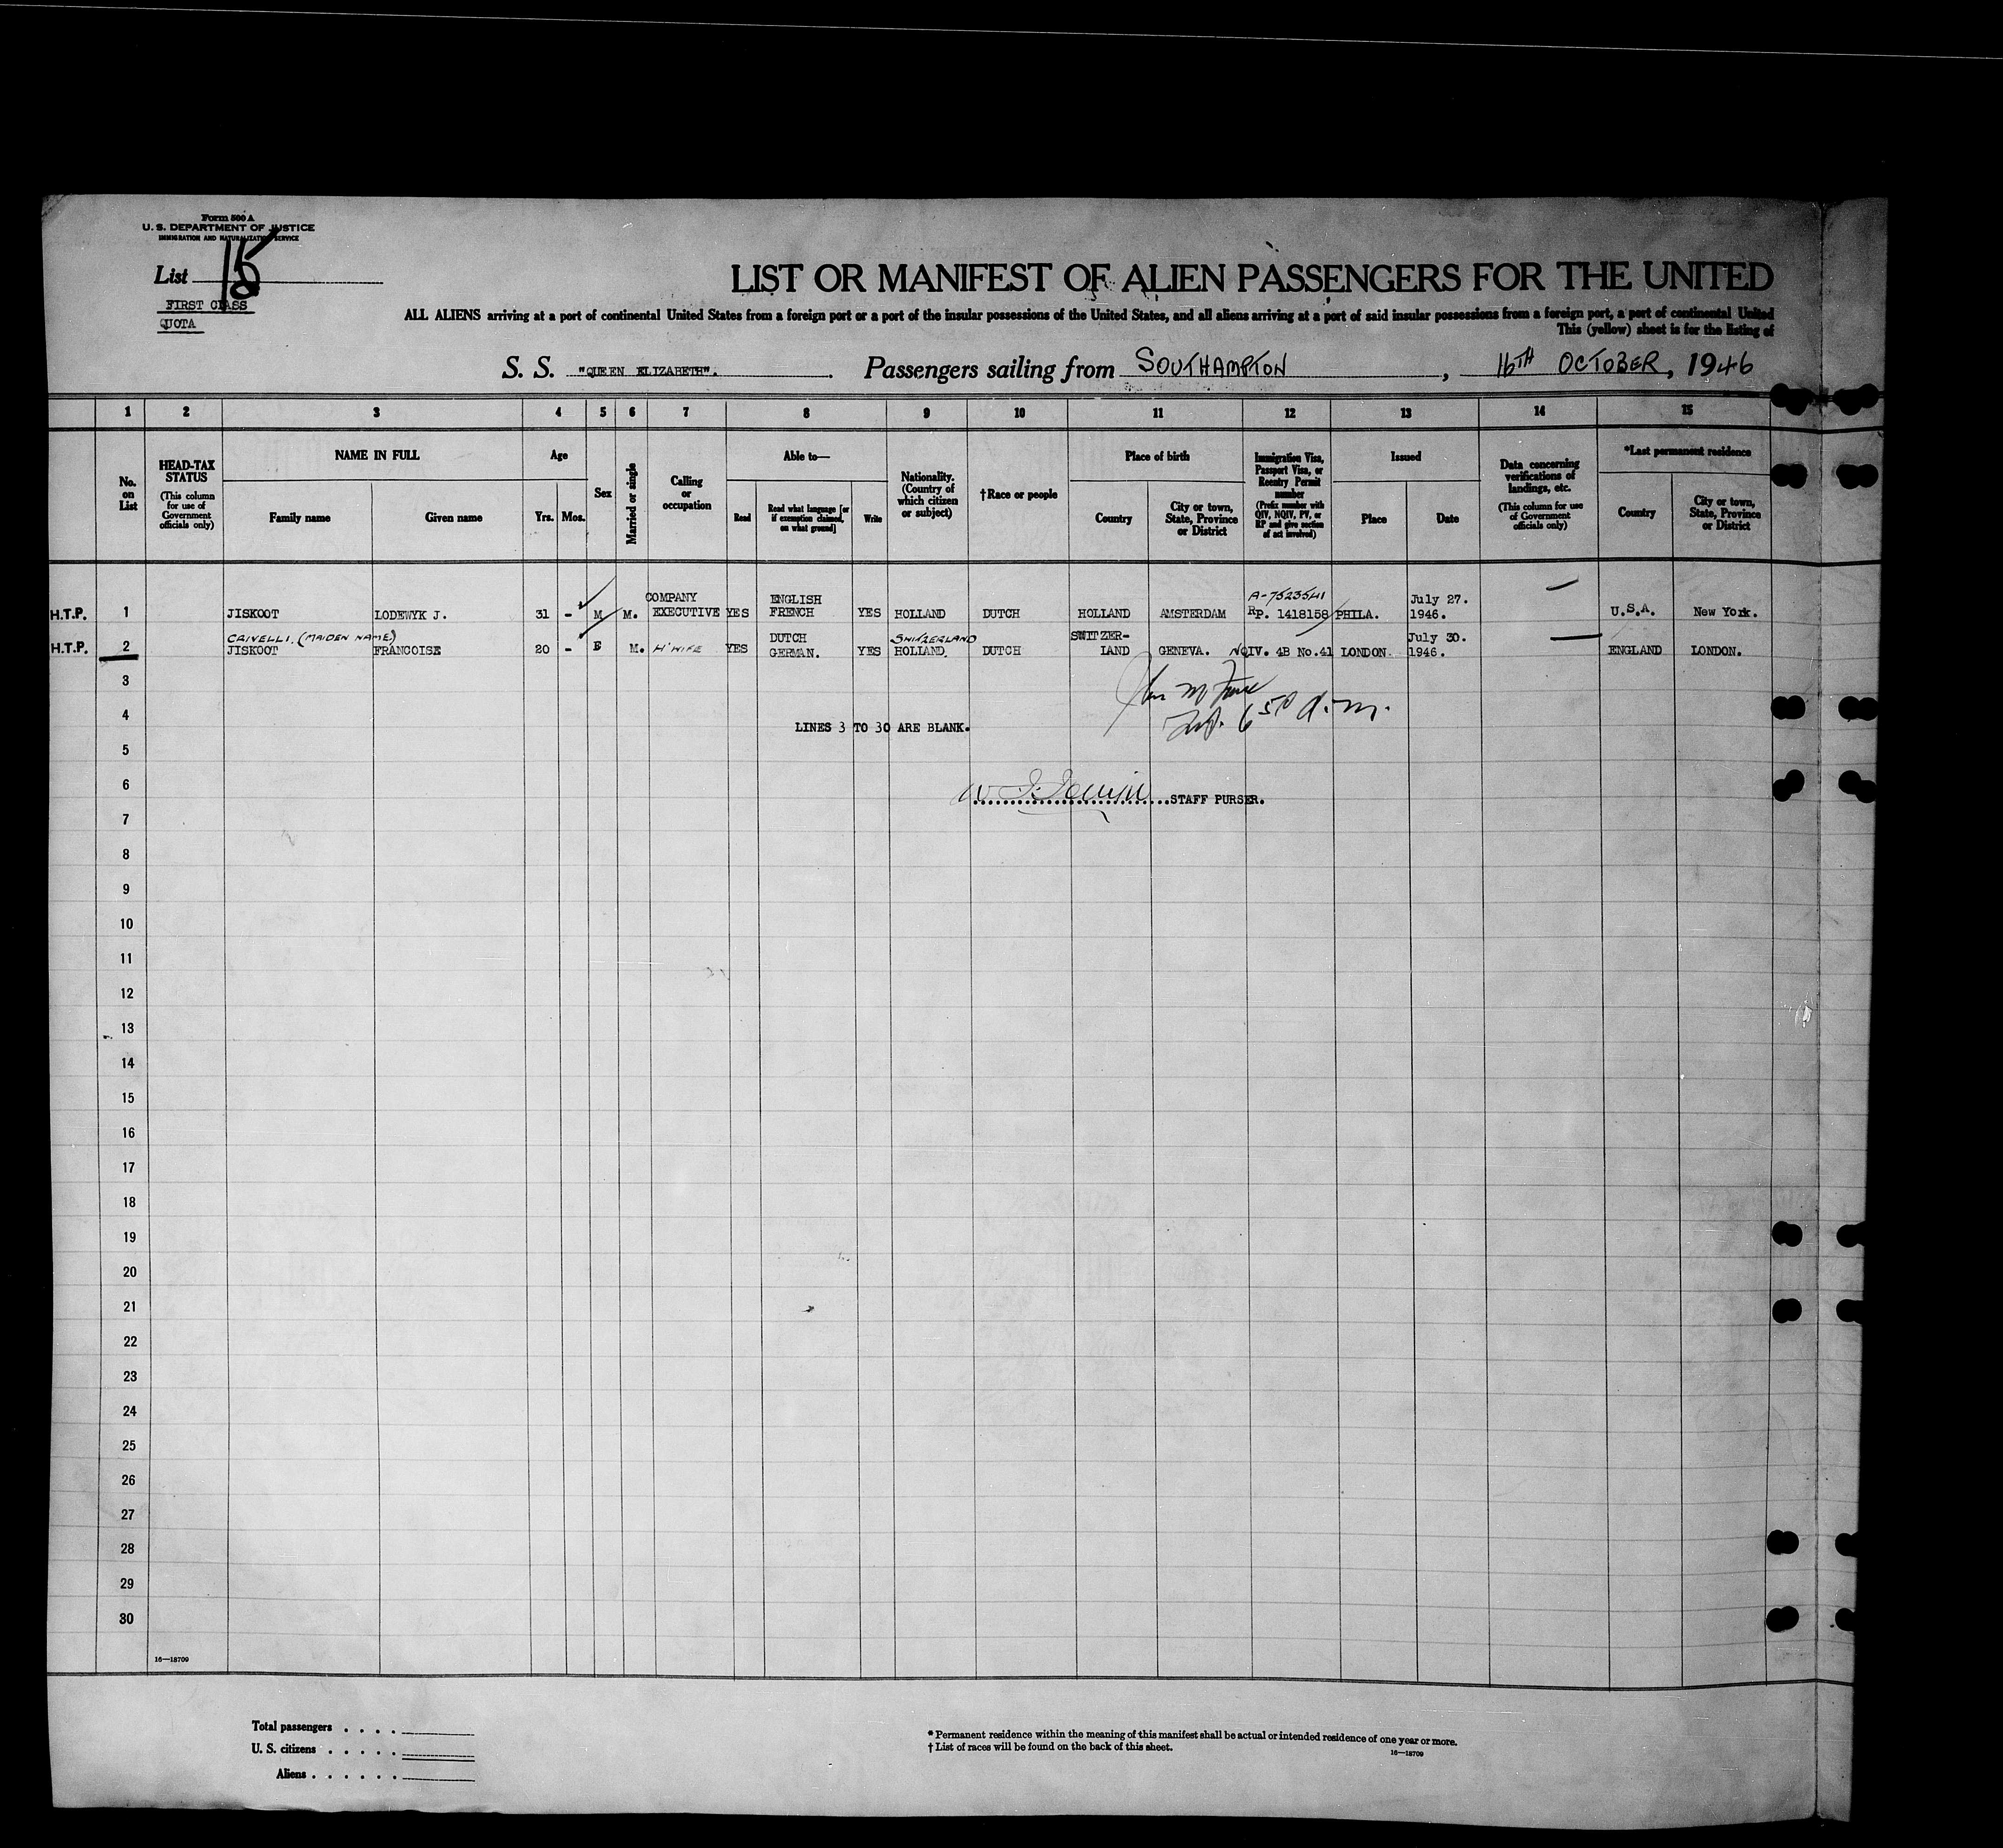 Form 500 A
U. S. DEPARTMENT OF JUSTICE
IMMIGRATION AND NATURALIZATION SERVICE
List 15
FIRST CLASS
QUOTA
LIST OR MANIFEST OF ALIEN PASSENGERS FOR THE UNITED
ALL ALIENS arriving at a port of continental United States from a foreign port or a port of the insular possessions of the United States, and all aliens arriving at a port of said insular possessions from a foreign port, a port of continental United
This (yellow) sheet is for the listing of
S. S. "QUEEN ELIZABETH". Passengers sailing from SOUTHAMPTON, 16TH OCTOBER, 1946
1 2 3 4 5 6 7 8 9 10 11 12 13 14 15
No. on List
HEAD-TAX STATUS
(This column for use of Government officials only)
NAME IN FULL
Family name
Given name
Age
Yrs.
Mos.
Sex
Married or single
Calling or occupation
Able to—
Read
Read what language [or if exemption claimed, on what ground]
Write
Nationality. (Country of which citizen or subject)
†Race or people
Place of birth
Country
City or town, State, Province or District
Immigration Visa, Passport Visa, or Reentry Permit number
(Prefix number with QIV, NQIV, PV, or RP and give section of act involved)
Issued
Place
Date
Data concerning verifications of landings, etc.
(This column for use of Government officials only)
*Last permanent residence
Country
City or town, State, Province or District
COMPANY ENGLISH A-7523541 July 27.
H.T.P. 1 JISKOOT LODEWYK J. 31 - M M. EXECUTIVE YES FRENCH YES HOLLAND DUTCH HOLLAND AMSTERDAM RP. 1418158 PHILA. 1946. U.S.A. New York.
CRIVELLI. (MAIDEN NAME) DUTCH SWITZERLAND SWITZER- July 30.
H.T.P. 2 JISKOOT FRANCOISE 20 - F M. H'WIFE YES GERMAN. YES HOLLAND. DUTCH LAND GENEVA. NQIV. 4B No.41 LONDON 1946. ENGLAND LONDON.
3
4
LINES 3 TO 30 ARE BLANK.
5
6
STAFF PURSER.
7
8
9
10
11
12
13
14
15
16
17
18
19
20
21
22
23
24
25
26
27
28
29
30
16—18709
Total passengers . . . .
U. S. citizens . . . . .
Aliens . . . . . .
* Permanent residence within the meaning of this manifest shall be actual or intended residence of one year or more.
† List of races will be found on the back of this sheet.
16—18709